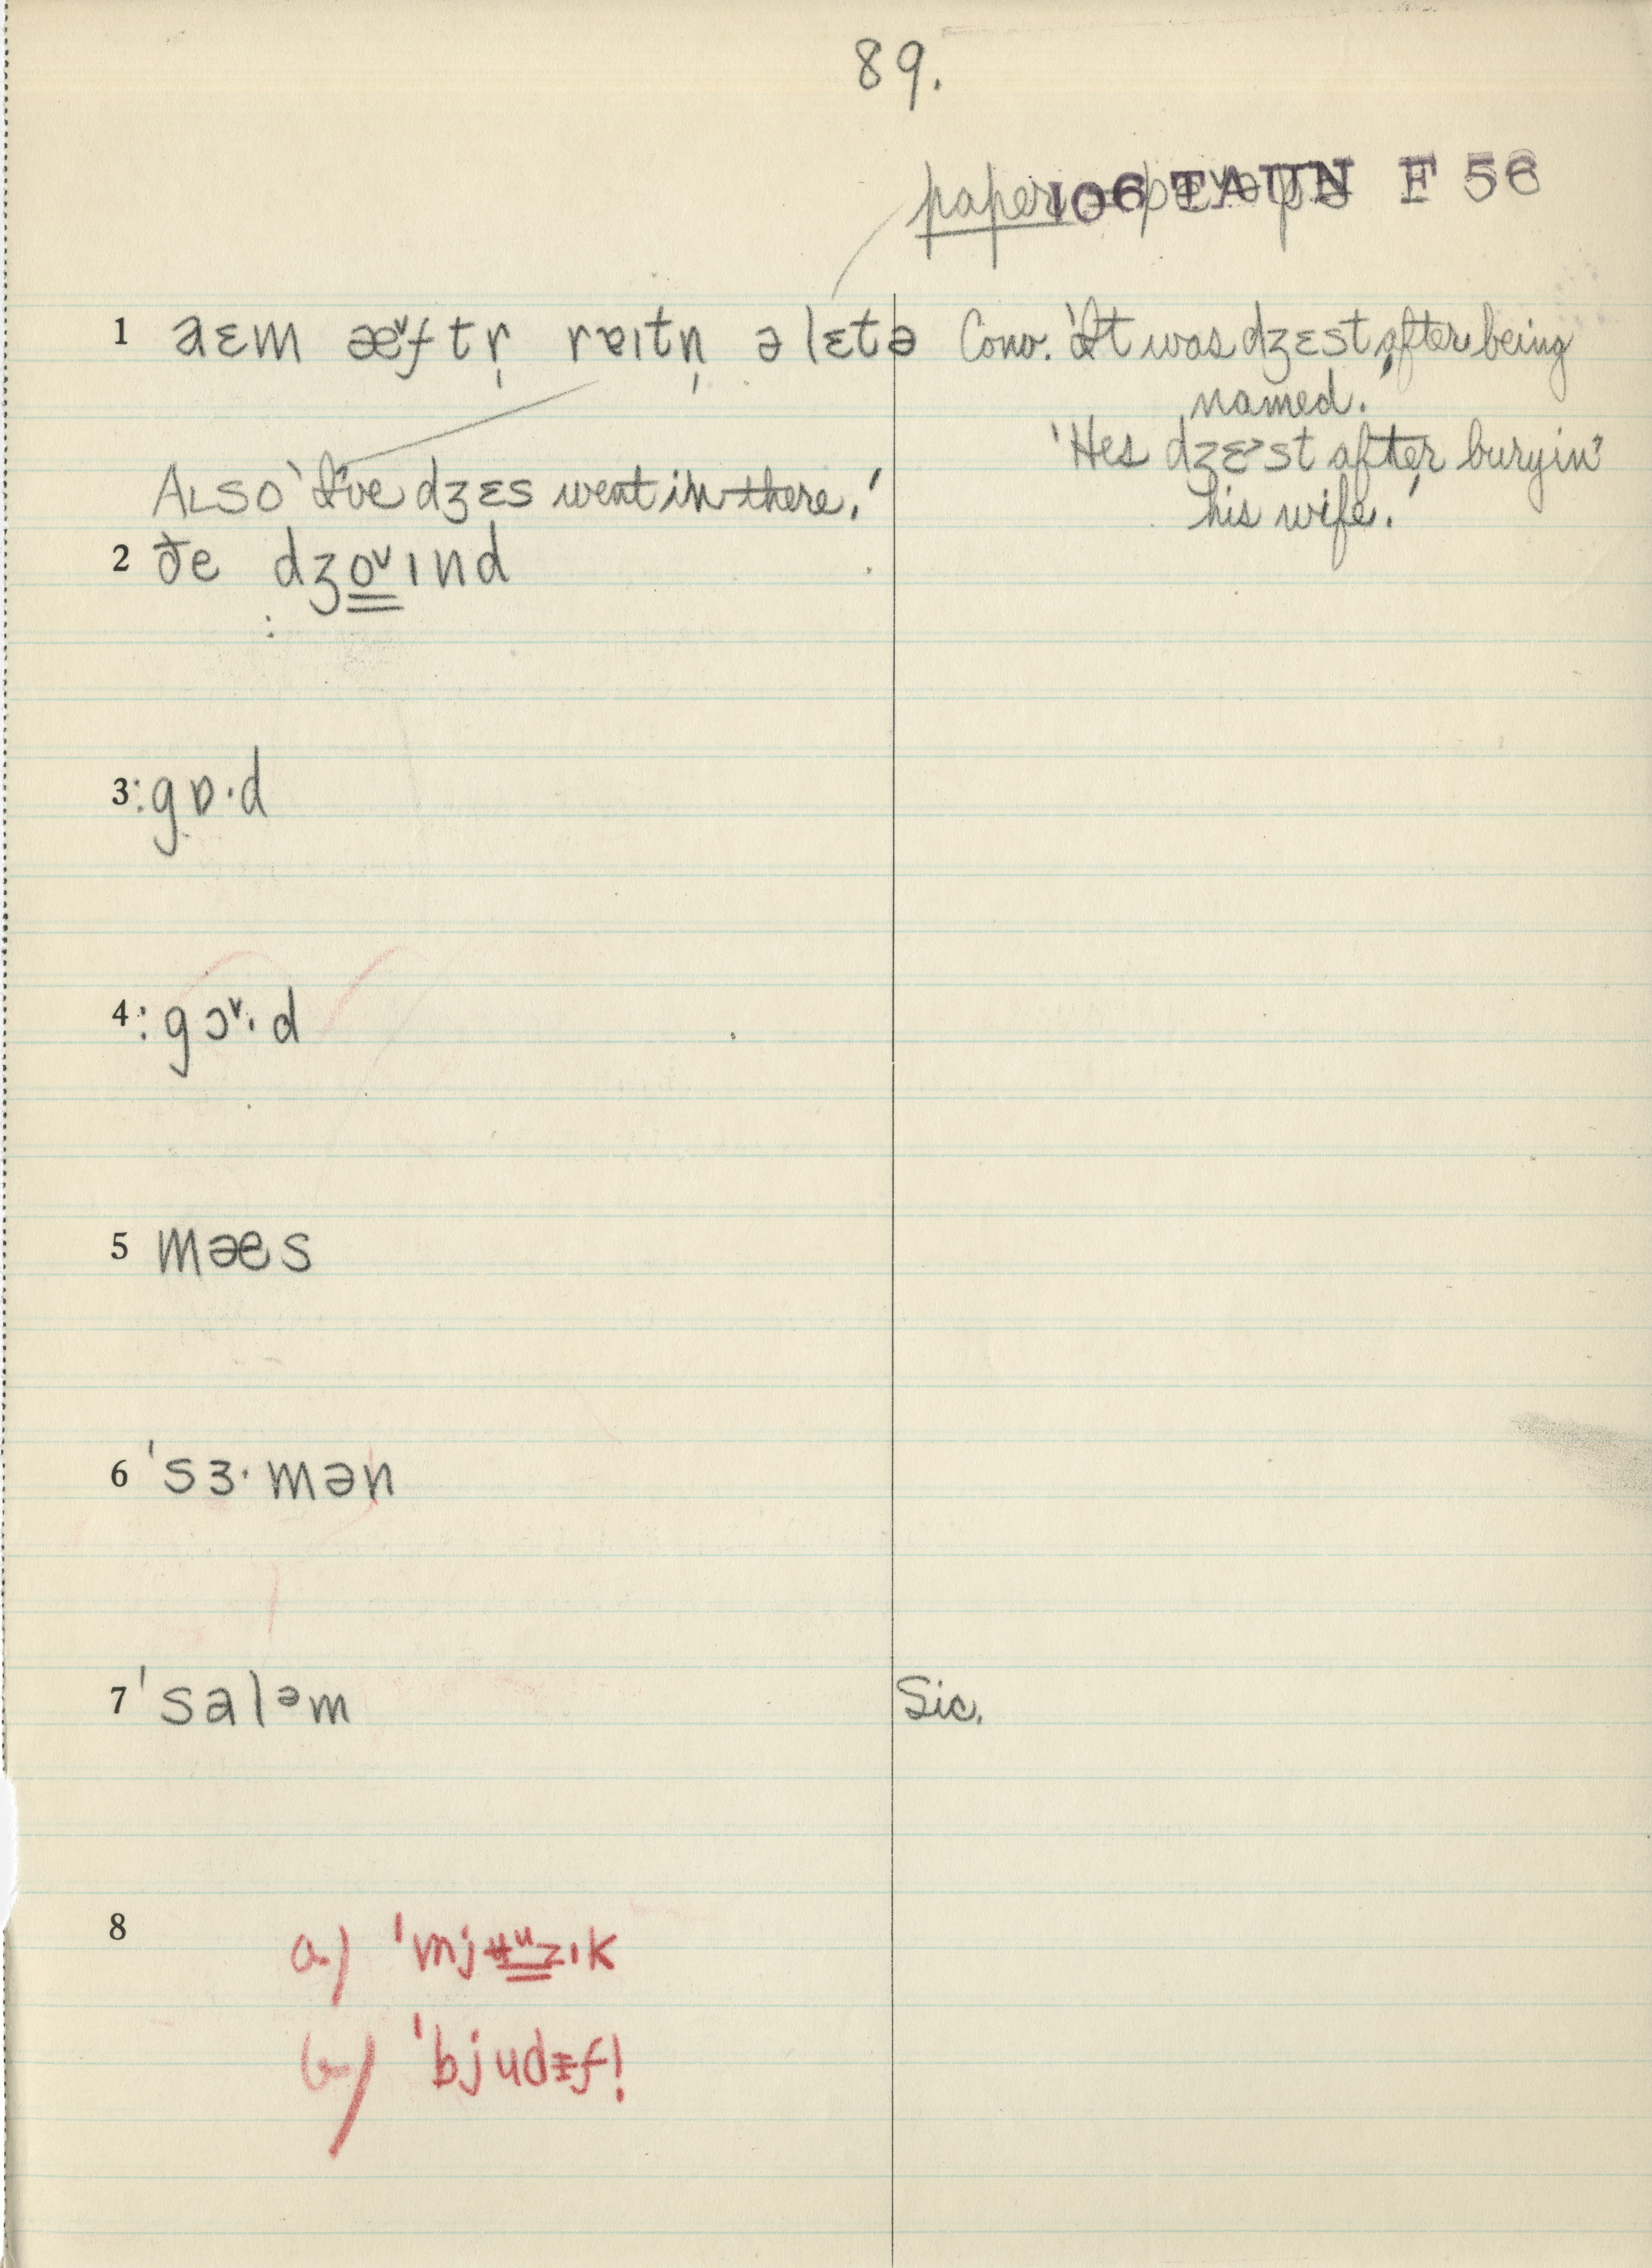 89.
paper = 106 TAUN F 56
1 aɛm æ˅ftṛ rɐıtṇ ə lɛtə Conv. 'It was dʒɛst after being
named.'
'Hes dʒɛ>st after buryin'
his wife.'
ALSO 'I've dʒɛs went in there.'
2 ðe dʒo˅ınd
3 :gɒ·d
4 :gɔ˅·d
5 mæs
6 'sɜ·mən
7 'salᵊm Sic.
8 a) 'mjʉᵘzık
b) 'bjudɪf!